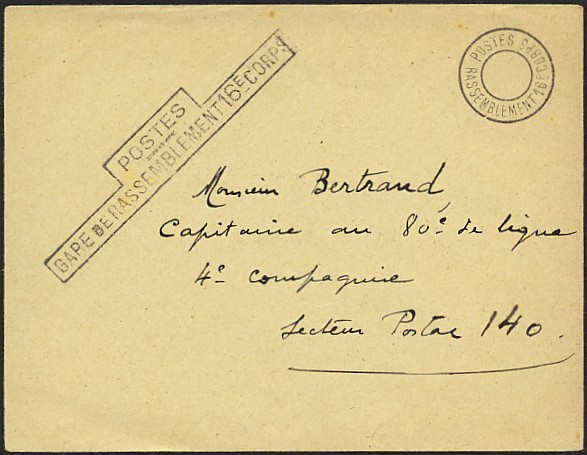 POSTES
GARE DE RASSEMBLEMENT 16E CORPS
POSTES
RASSEMBLEMENT 16E CORPS
Monsieur Bertrand,
Capitaine au 80e de ligne
4e compagnie
Secteur Postal 140.